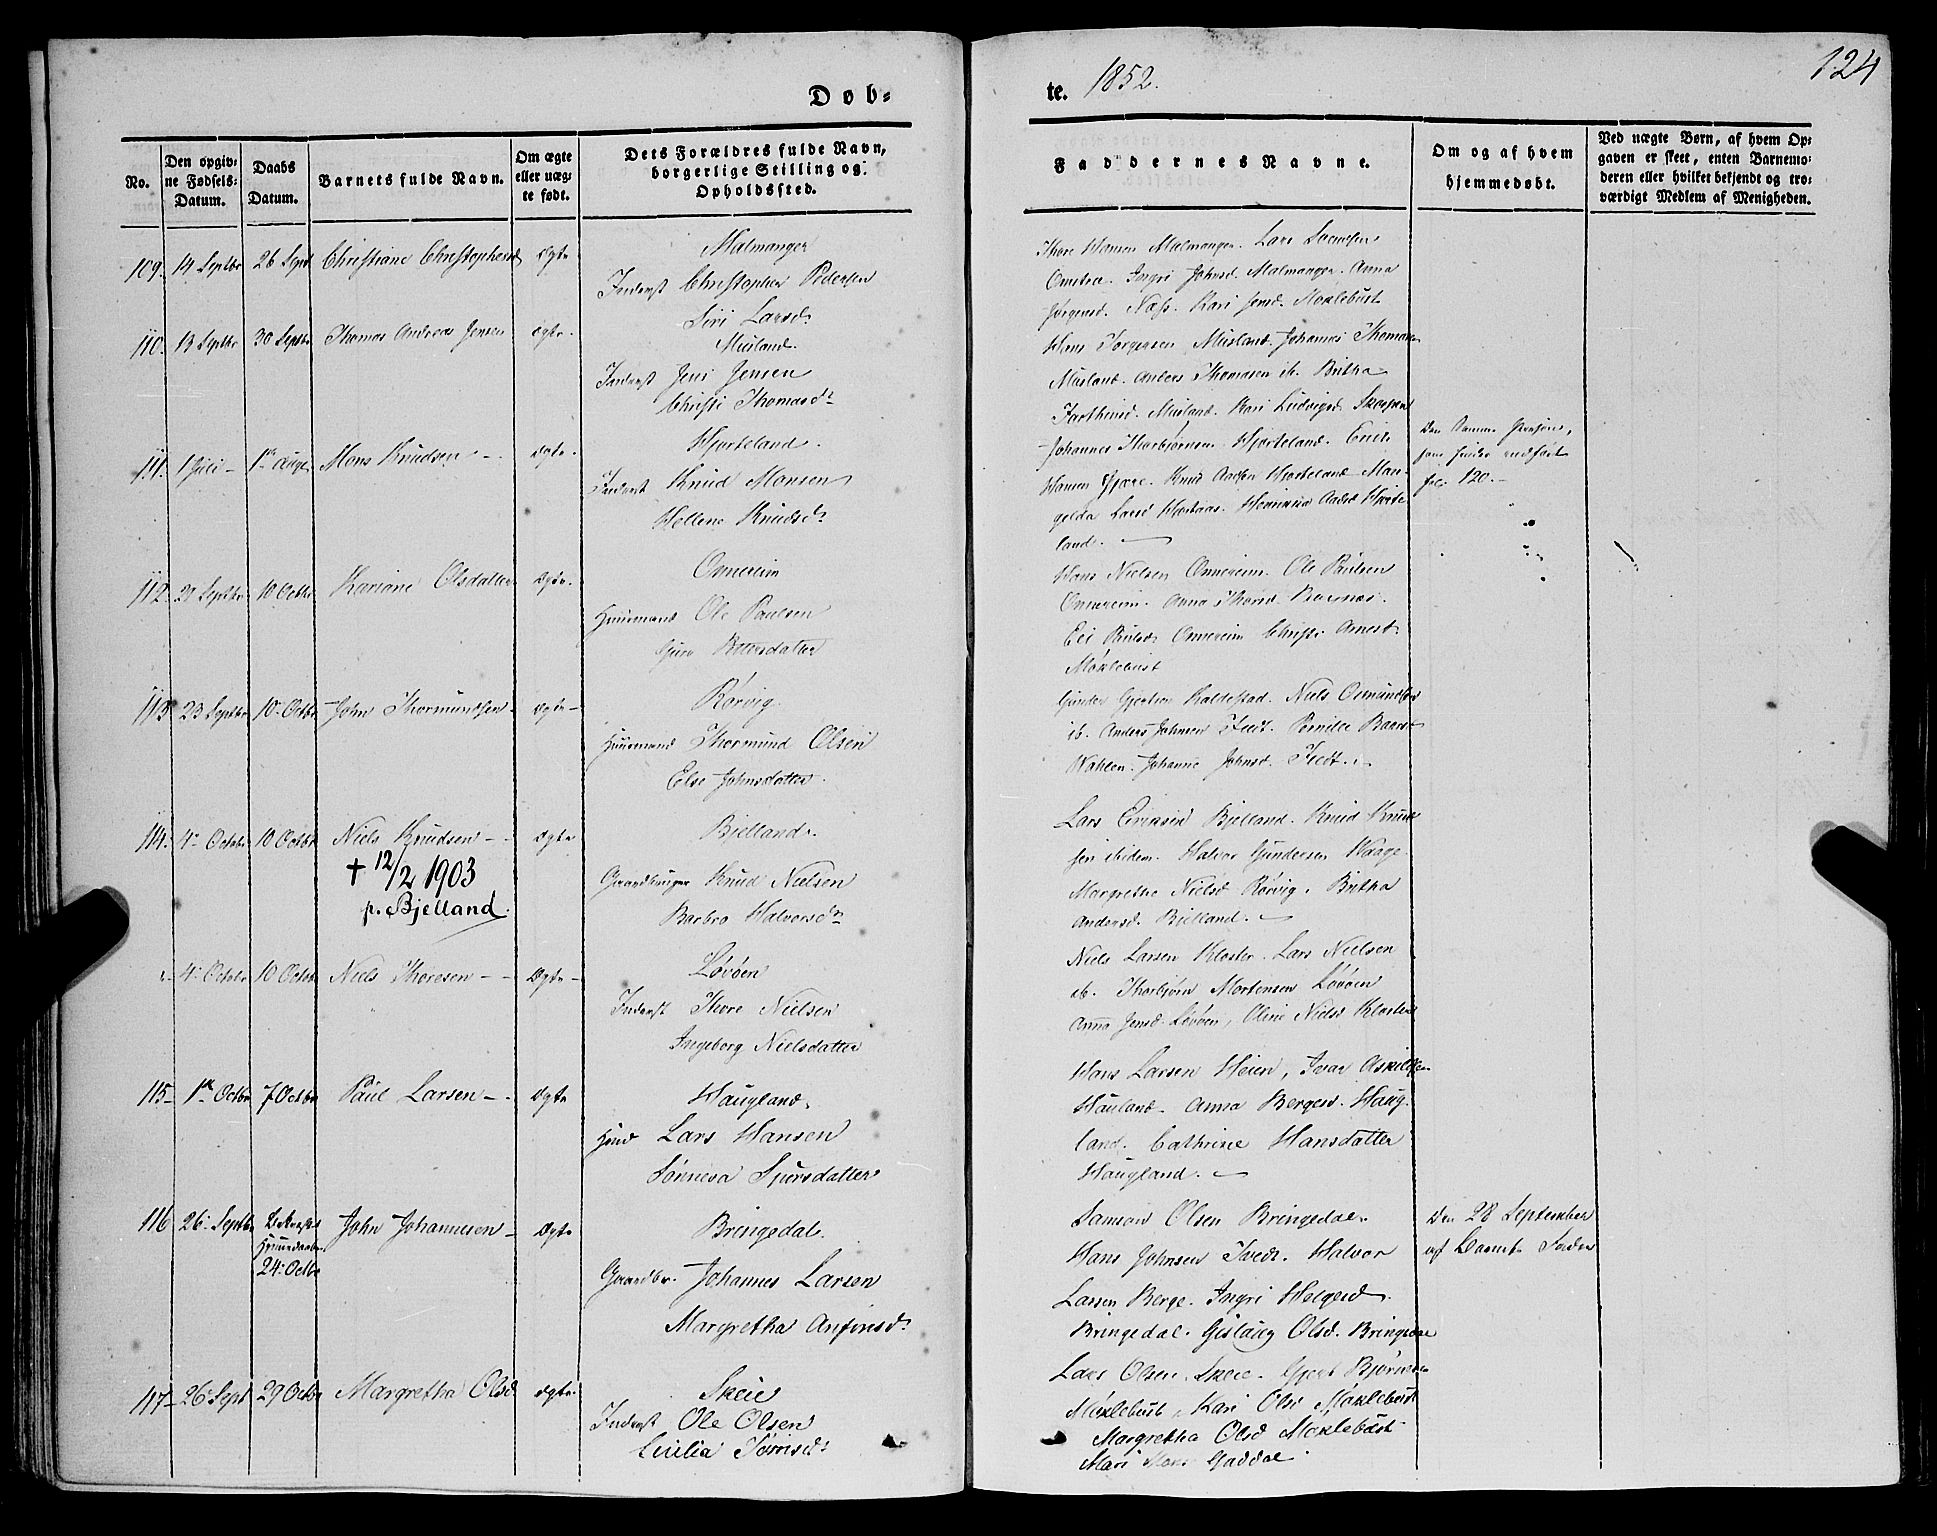 124
Døb-
te. 1852.
No.
Den opgiv-
ne Fødsels-
Datum.
Daabs
Datum.
Barnets fulde Navn.
Om ægte
eller uæg-
te født.
Dets Forældres fulde Navn,
borgerlige Stilling og
Opholdssted.
Faddernes Navne.
Om og af hvem
hjemmedøbt.
Ved uægte Børn, af hvem Op-
gaven er skeet, enten Barnemo-
deren eller hvilket bekjendt og tro-
værdigt Medlem af Menigheden.
109. 14 Septbr 26 Sept Christiane Christophersd ægte
Malmanger
Inderst Christopher Pedersen
Siri Larsd.
Thore Hansen Malmanger. Lars
Ingri Johnsd. Malmanger. Anna
Jørgensd. Næss. Kari Jensd. Møxlebust
110. 13 Septbr 30 Septbr Thomas Andreas Jensen ægte.
Musland.
Inderst Jens Jensen
Christi Thomasd.
Hans Jørgensen Musland. Johannes Thomasen
Musland. Anders Thomasen ib. Britha
Musland. Kari Ludvigsd.
111. 1 Juli - 1ste Aug. Mons Knudsen - ægte.
Hjorteland.
Inderst Knud Monsen
Hellene Knudsd.
Johannes Thorbjørnsen Hjorteland. Erik
Hansen. Knud Hjorteland. Man-
gelda Larsd Hjorte-
land.
fol. 120.-
112. Septbr 10 Octbr Kariane Olsdatter ægte.
Omereim
Huusmand Ole Paulsen
Guro Pettersdatter
Hans Nielsen Omereim. Ole Paulsen
Omereim. Anna Thorsd.
Eli Paulsd. Omereim Christi
Møxlebust
113. 23 Septbr 10 Octbr John Thormundsen - ægte -
Rørvig.
Huusmand Thormund Olsen
Else Johnsdatter.
Kaldestad. Niels Osmundsen
ib. Anders Johnsen Tvedt. Pernille
Wahlen. Johanne Johnsd. Tvedt.
114. 4. Octobr 10 Octbr Niels Knudsen - ægte
† 12/2 1903
p. Bjelland.
Bjelland.
Gaardbruger Knud Nielsen
Barbro Halvorsd.
Lars Bjelland. Knud Knud-
sen ibidem. Halvor Gundersen Waage.
Margretha Nielsd Rørvig. Britha
Andersd. Bjelland.
4. Octobr 10 Octbr Niels Thoresen - - ægte -
Løvøen
Inderst Thore Nielsen
Ingeborg Nielsdatter
Niels Larsen Kloster. Lars Nielsen
ib. Thorbjørn Mortensen Løvøen
Anna Jensd. Løvøen, Oline Nielsd Kloster
115 - 1ste Octbr 7 Octbr Paul Larsen - ægte
Haugland.
Huusmd Lars Hansen
Sønneva Sjursdatter
Hans Larsen Heien, Ivar Askildsen
Hauland. Anna Bergesd. Haug-
land. Cathrine Hansdatter
Haugland.
116 26. Septbr Bekræftet
Hjemmedaaben
24. Octbr John Johannesen - ægte
Bringedal.
Gaardbr. Johannes Larsen
Margretha Anfinsd.
Samson Olsen Bringedal.
Hans Johnsen Tvedt. Halvor
Larsen Berge. Ingri Helgesd.
Bringedal. Gislaug Olsd. Bringedal
Den 28 September
af Barnets Fader
117 - 26. Sept 29 Octbr Margretha Olsd ægte.
Skeie
Inderst Ole Olsen
Cecilia Tørrisd.
Lars Olsen Skeie. Gjert Bjørnsen
Møxlebust, Kari Olsd Møxlebust
Margretha Olsd Møxlebust
Mari Gaddal